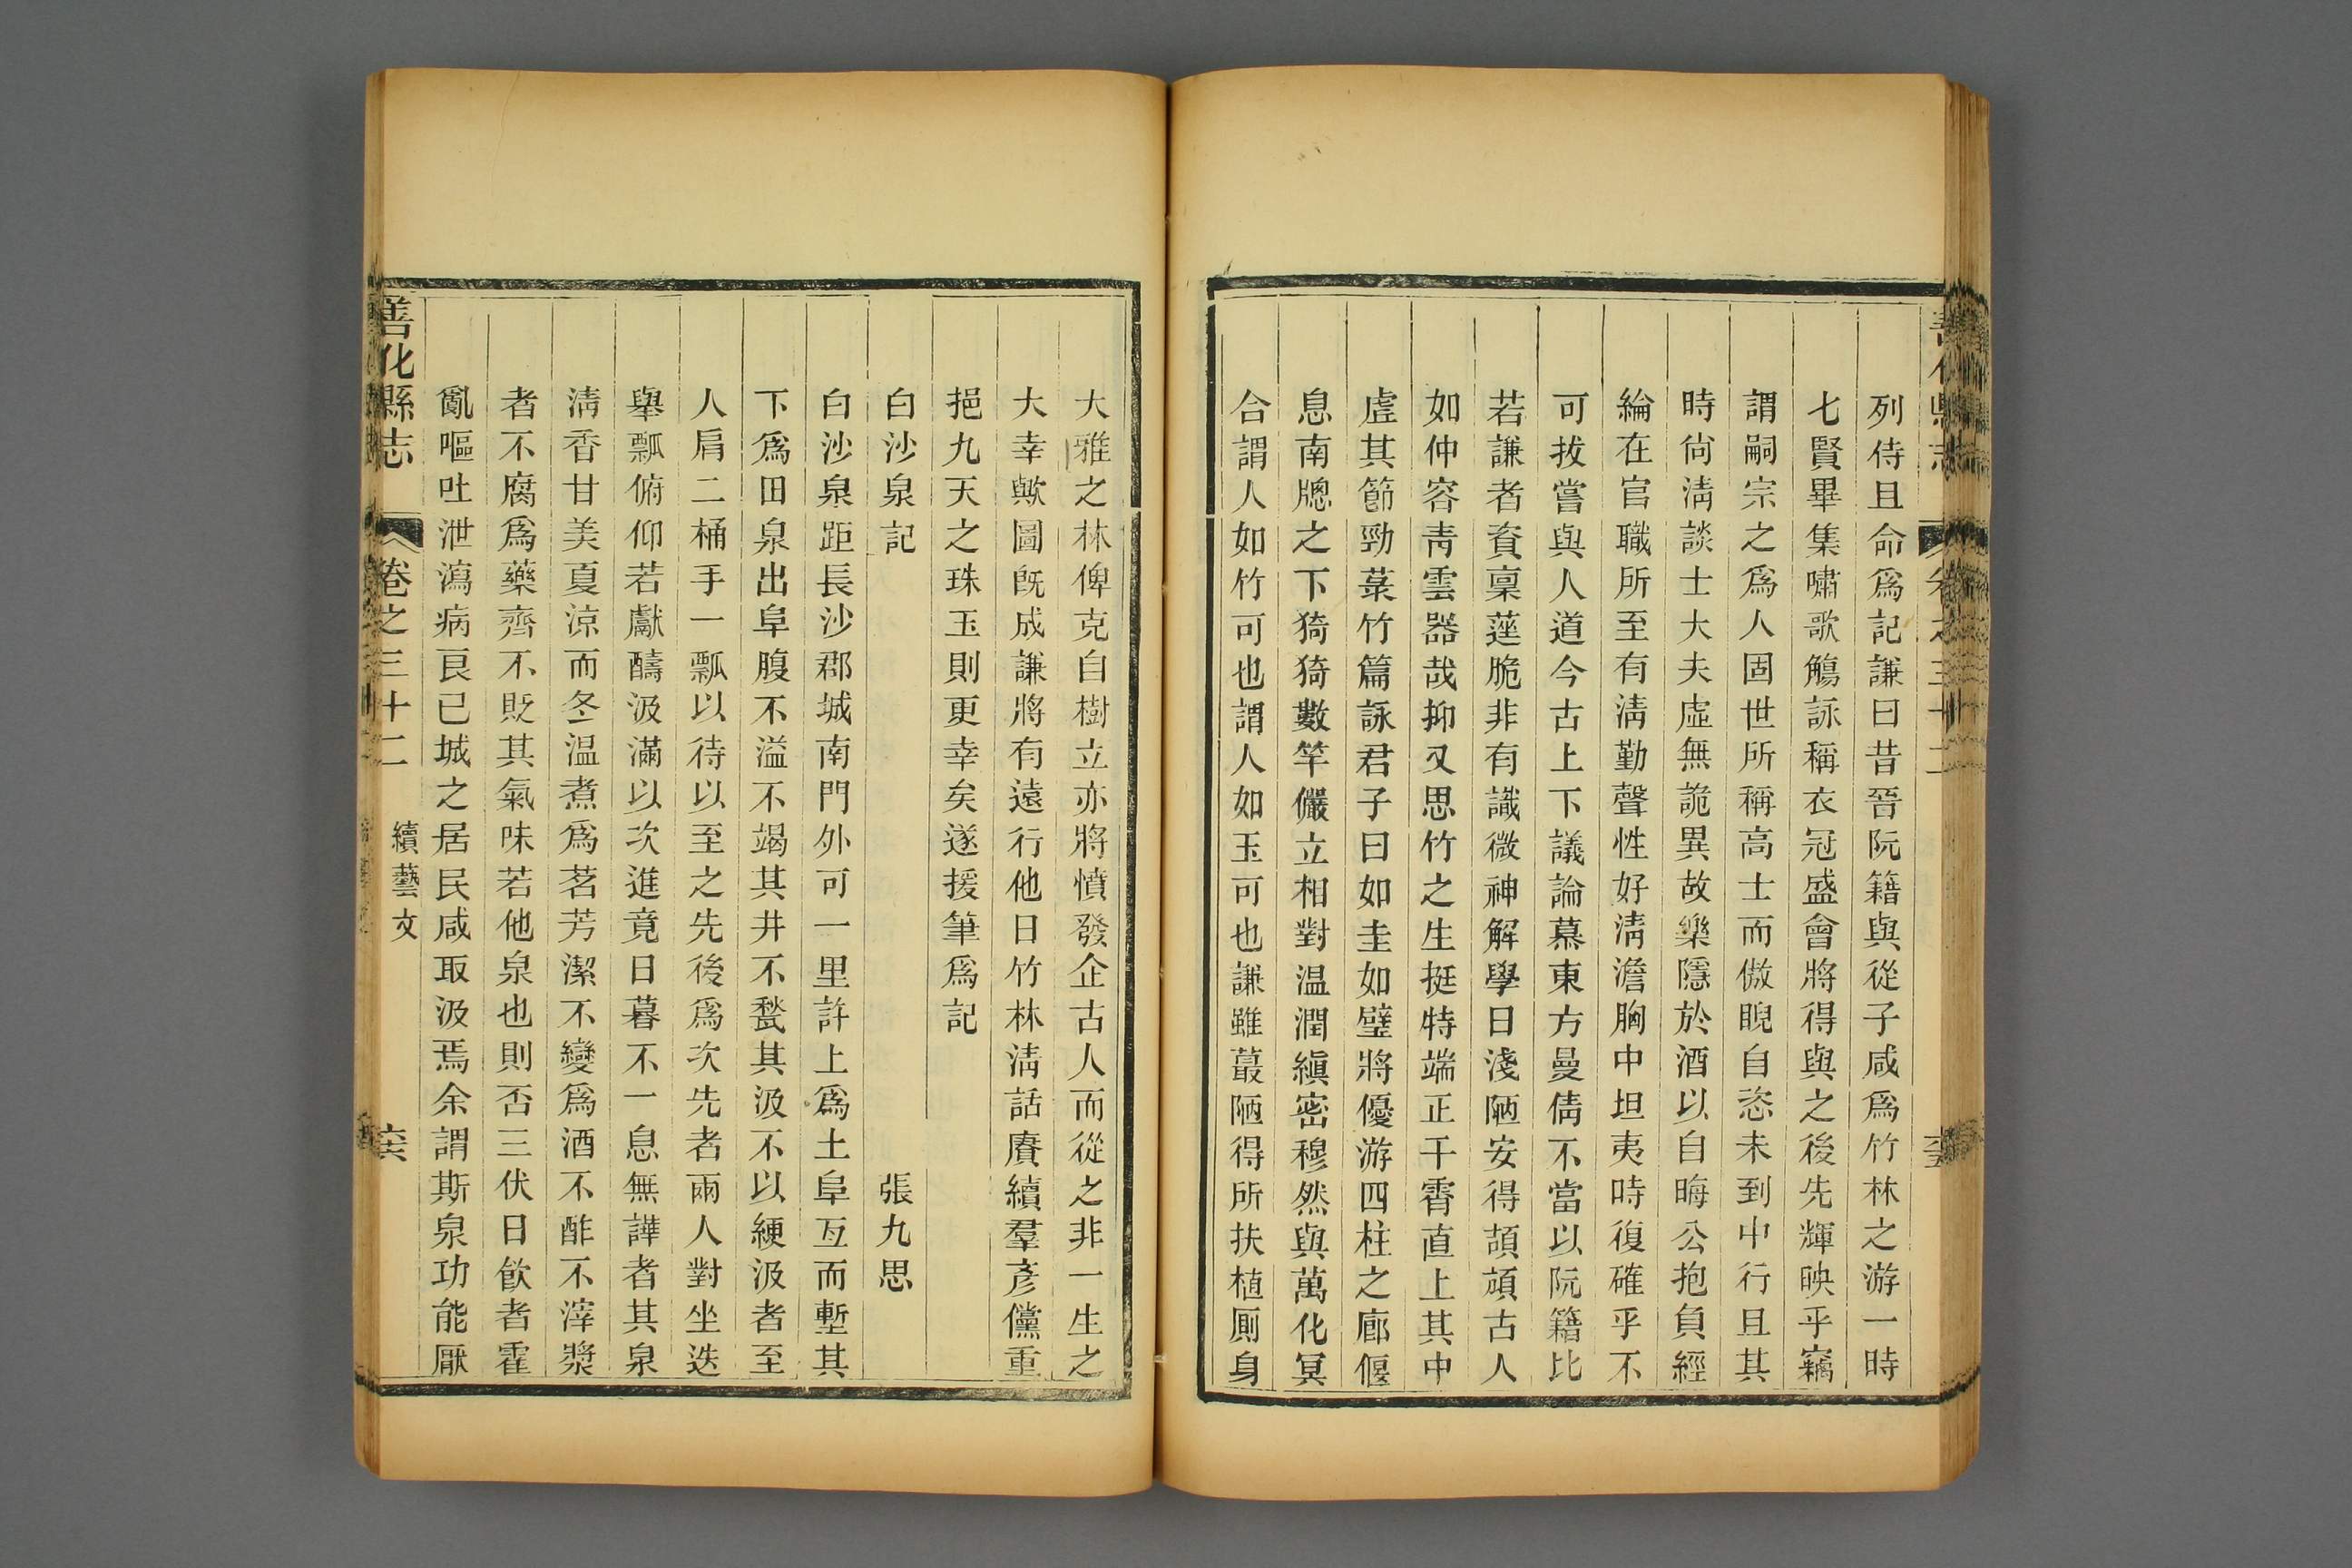 列侍且命爲記謙曰昔晉阮籍與從子咸爲竹林之游一時
七賢畢集嘯歌觴詠稱衣冠盛會將得與之後先輝映乎竊
謂嗣宗之爲人固世所稱高士而傲睨自恣未到中行且其
時尙淸談士大夫虛無詭異故樂隱於酒以自晦公抱負經
綸在官職所至有淸勤聲性好淸澹胸中坦夷時復確乎不
可拔嘗與人道今古上下議論慕東方曼倩不當以阮籍比
若謙者資稟薄脆非有識微神解學日淺陋安得頡頏古人
如仲容靑雲器哉抑又思竹之生挺特端正千霄直上其中
虛其節勁菉竹篇詠君子曰如圭如璧將優游四柱之廊偃
息南牕之下猗猗數竿儼立相對温潤縝密穆然與萬化冥
合謂人如竹可也謂人如玉可也謙雖蕞陋得所扶植厠身
大雅之林俾克自樹立亦將憤發企古人而從之非一生之
大幸歟圖旣成謙將有遠行他日竹林淸話賡續羣彥儻重
挹九天之珠玉則更幸矣遂援筆爲記
白沙泉記　張九思
白沙泉距長沙郡城南門外可一里許上爲土阜亙而塹其
下爲田泉出阜腹不溢不竭其井不甃其汲不以綆汲者至
人肩二桶手一瓢以待以至之先後爲次先者兩人對坐迭
舉瓢俯仰若獻醻汲滿以次進竟日暮不一息無譁者其泉
淸香甘美夏涼而冬温煮爲茗芳潔不變爲酒不酢不滓漿
者不腐爲藥齊不貶其氣味若他泉也則否三伏日飮者霍
亂嘔吐泄瀉病良已城之居民咸取汲焉余謂斯泉功能厭
善化縣志　卷之三十二　續藝文　六六